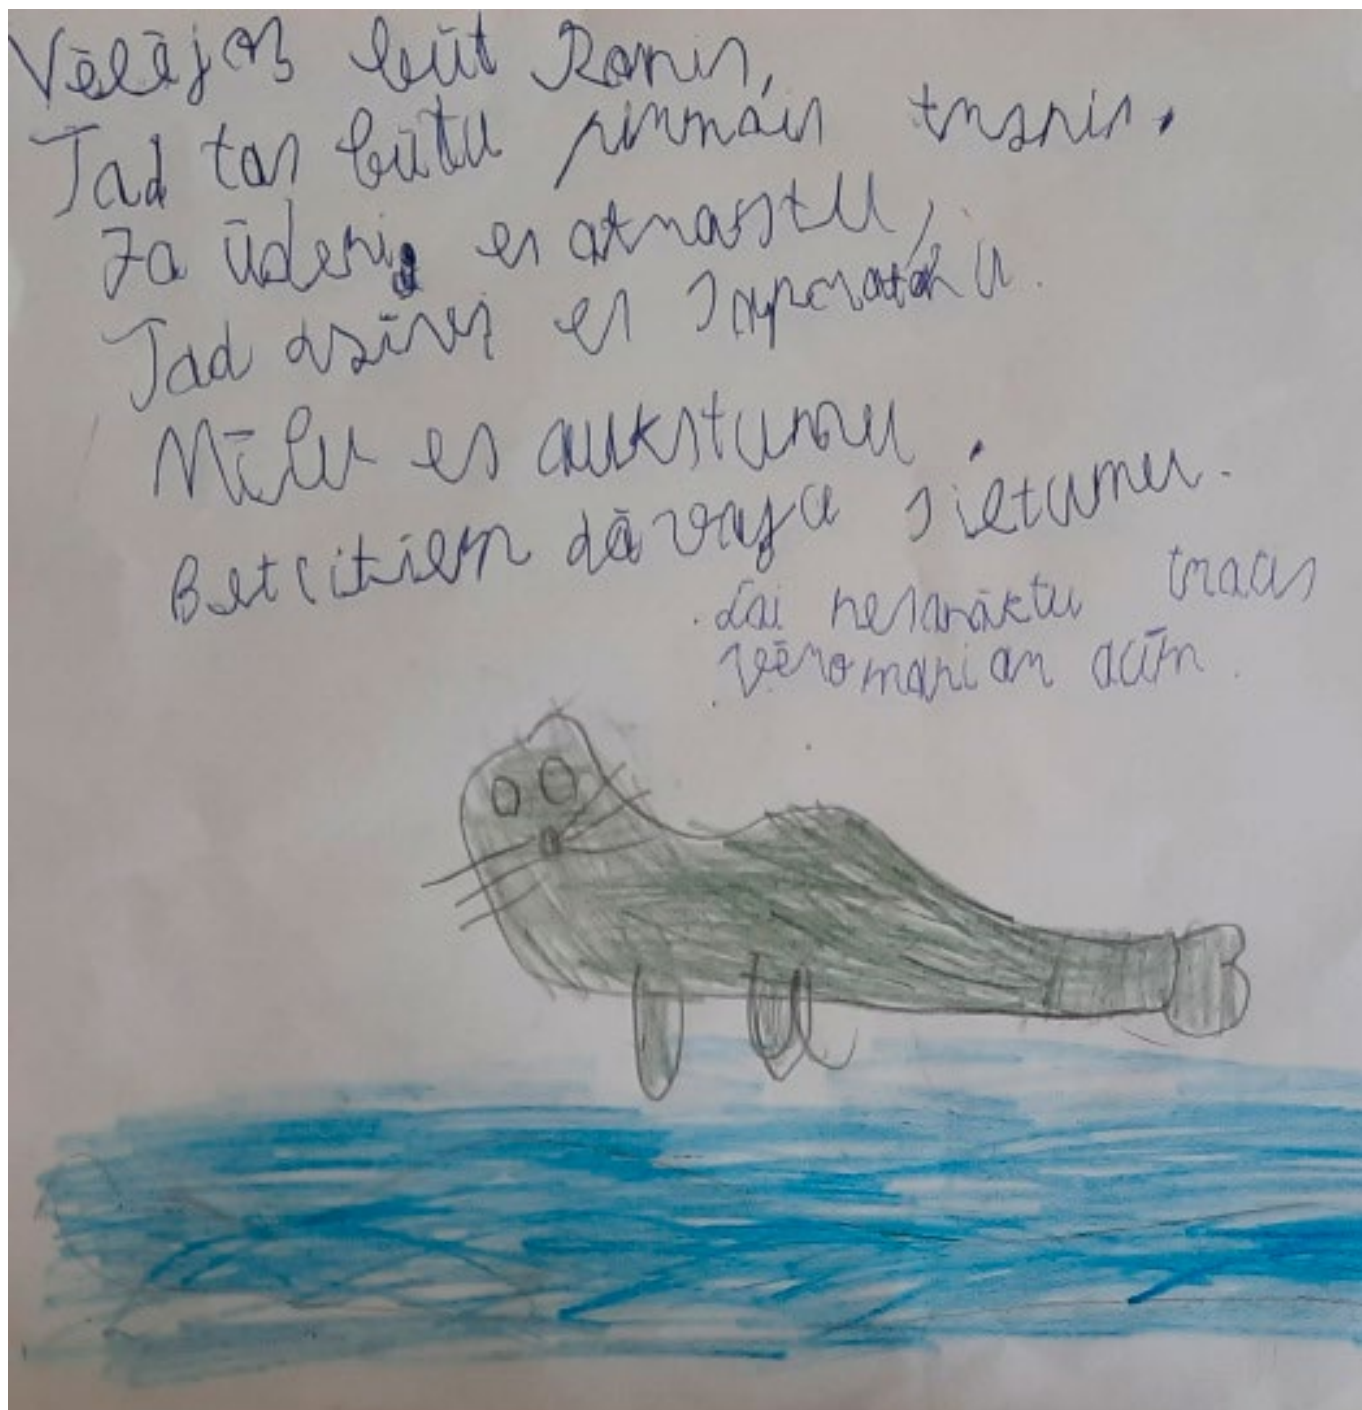 Vēlējos būt Ronis,
Tad tas būtu pirmais
Ja ūdeni es atrastu,
Tad dzīvi es saprastu.
Mīlu es aukstumu.
Bet citiem dāvaju siltumu.
Lai nesanāktu tracis
vēro mani an acīm.